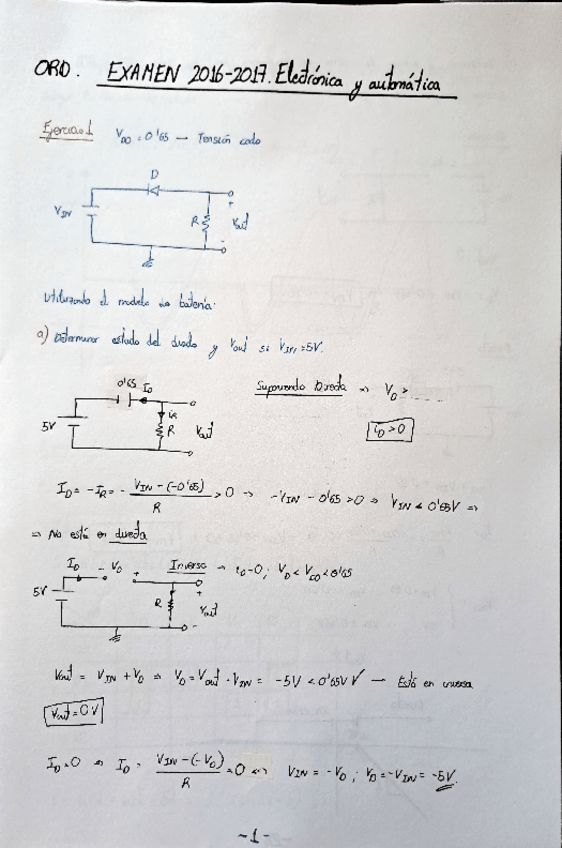 ORD. EXAMEN 2016-2017. Electrónica y automática
Ejercicio 1 V_DO = 0'65 — Tensión codo
D
V_IN R + Vout -
Utilizando el modelo de batería.
a) Determinar estado del diodo y Vout si V_IN = 5V.
0'65 I_D
Suponiendo Directa → V_D >
5V i_R R Vout
i_D > 0
I_D = -I_R = - V_IN - (-0'65) / R > 0 → -V_IN - 0'65 > 0 ⇒ V_IN < 0'65V ⇒
⇒ No está en directa
I_D - V_D + Inversa → i_D = 0; V_D < V_CO < 0'65
5V R + Vout -
Vout = V_IN + V_D ⇒ V_D = Vout - V_IN = -5V < 0'65V ✓ — Está en inversa
Vout = 0V
I_D = 0 ⇒ I_D = V_IN - (-V_D) / R = 0 ⇔ V_IN = -V_D; V_D = -V_IN = -5V.
-1-